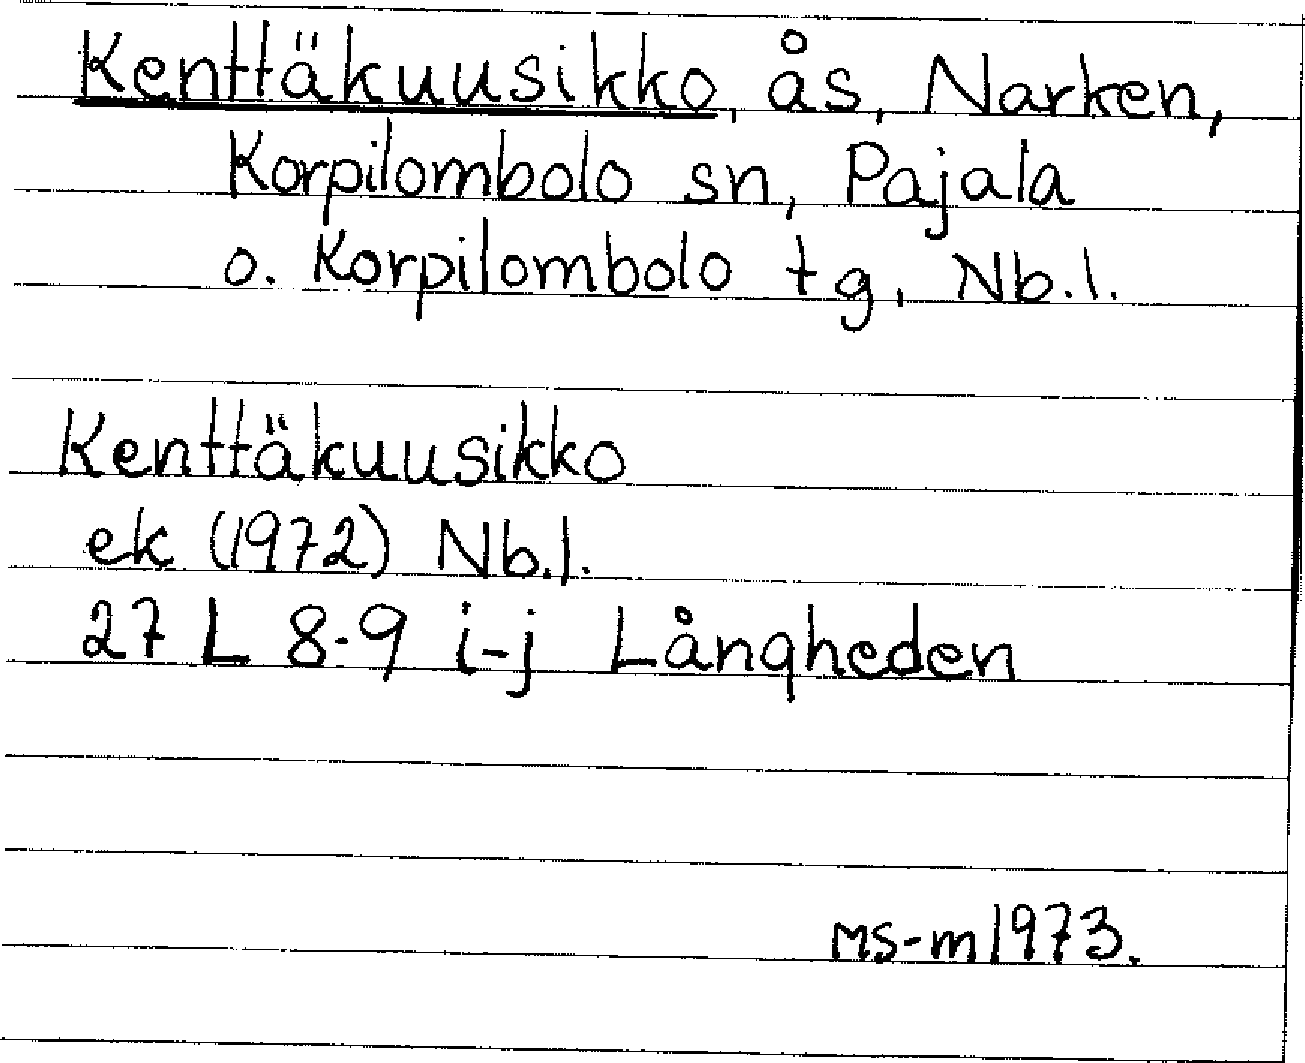 Kenttäkuusikko, ås, Narken,
Korpilombolo sn, Pajala
o. Korpilombolo tg, Nb.l.
Kenttäkuusikko
ek (1972) Nb.l.
27 L 8-9 i-j Långheden
MS-m 1973.